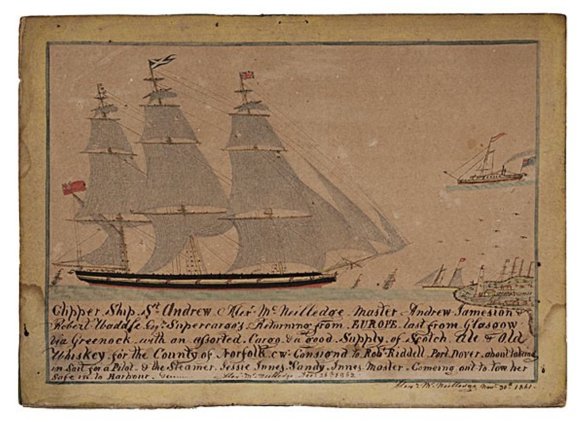 Clipper Ship St Andrew Alexr McNeilledge Master Andrew Jamesion &
Robert Waddle Esqr Supercargo's Returning from EUROPE last from Glasgow
via Greenock with an assorted Cargo & a good Supply of Scotch Ale & Old
Whiskey for the County of Norfolk C.W. Consignd to Robt Riddell Port Dover, about taking
in Sail for a Pilot & the Steamer Jessie Innes, Sandy Innes Master. Comeing out to tow her
Safe in to Harbour.
Alexr McNeilledge Nov. 30th 1861.